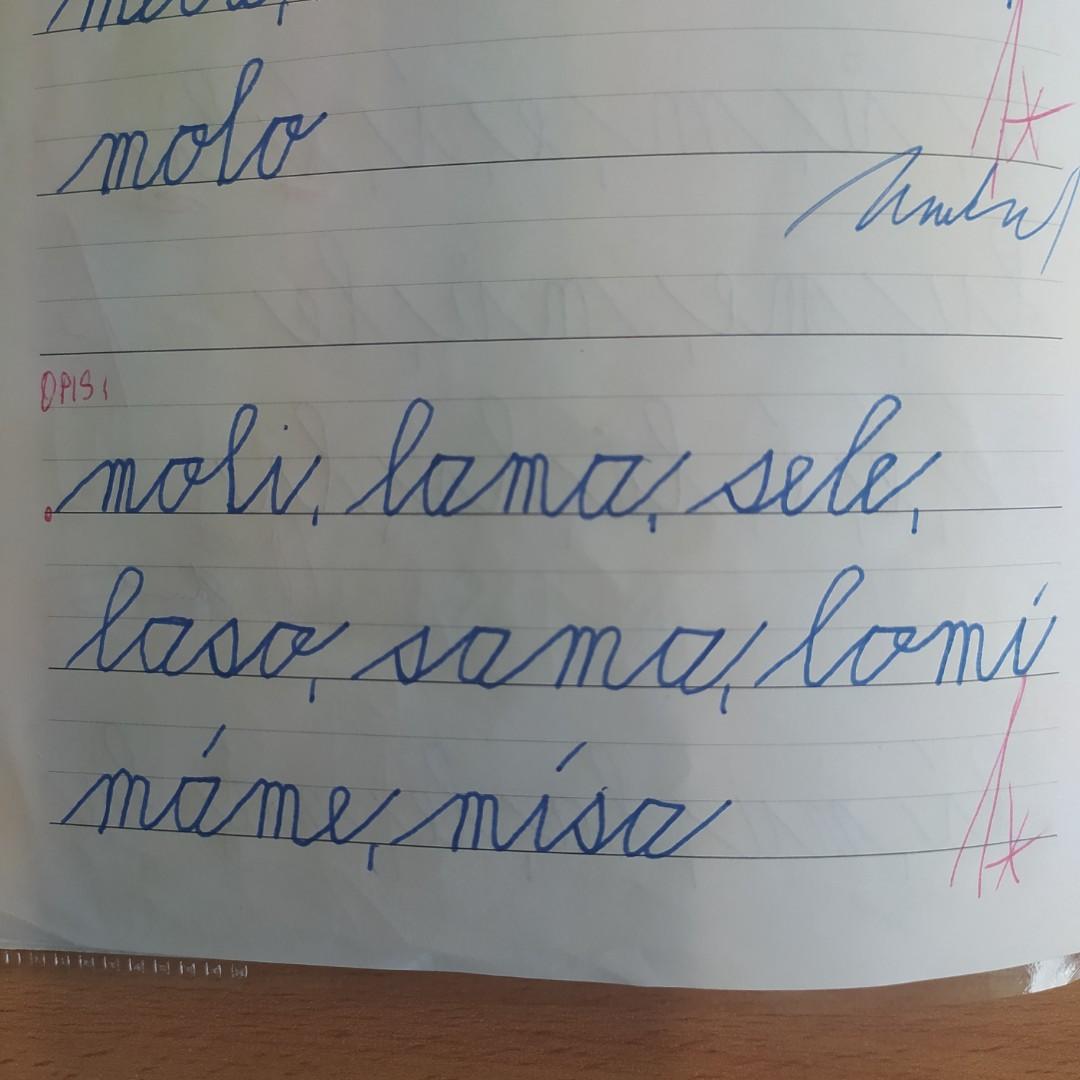 molo
OPIS:
moli, lama, sele,
laso, sama, lomí
máme, mísa
1*